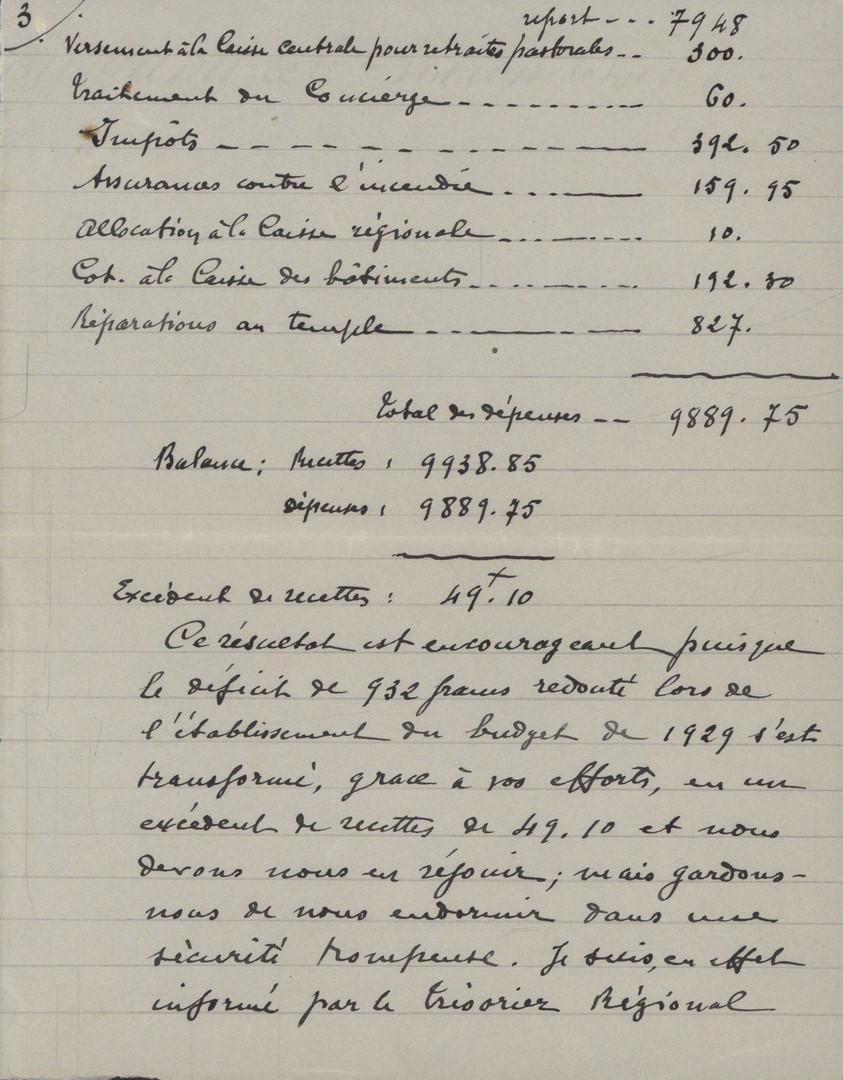 3
report - - - 7948
Versement à la Caisse centrale pour retraites pastorales - - 300.
Traitement du Concierge - - - - - - - - - - 60.
Impôts - - - - - - - - 392. 50
Assurances contre l'incendie - - - - 159. 95
Allocation à la Caisse régionale - - - - - - - 10.
Cot. à la Caisse des bâtiments - - - - - - - 192. 30
Réparations au temple - - - - - - - 827.
Total des dépenses - - 9889. 75
Balance ; Recettes : 9938.85
dépenses : 9889.75
Excédent de recettes : 49. 10
Ce résultat est encourageant puisque
le déficit de 932 francs redouté lors de
l'établissement du budget de 1929 s'est
transformé, grace à vos efforts, en un
excédent de recettes de 49.10 et nous
devons nous en réjouir ; mais gardons-
nous de nous endormir dans une
sécurité trompeuse. Je suis, en effet
informé par le Trésorier Régional